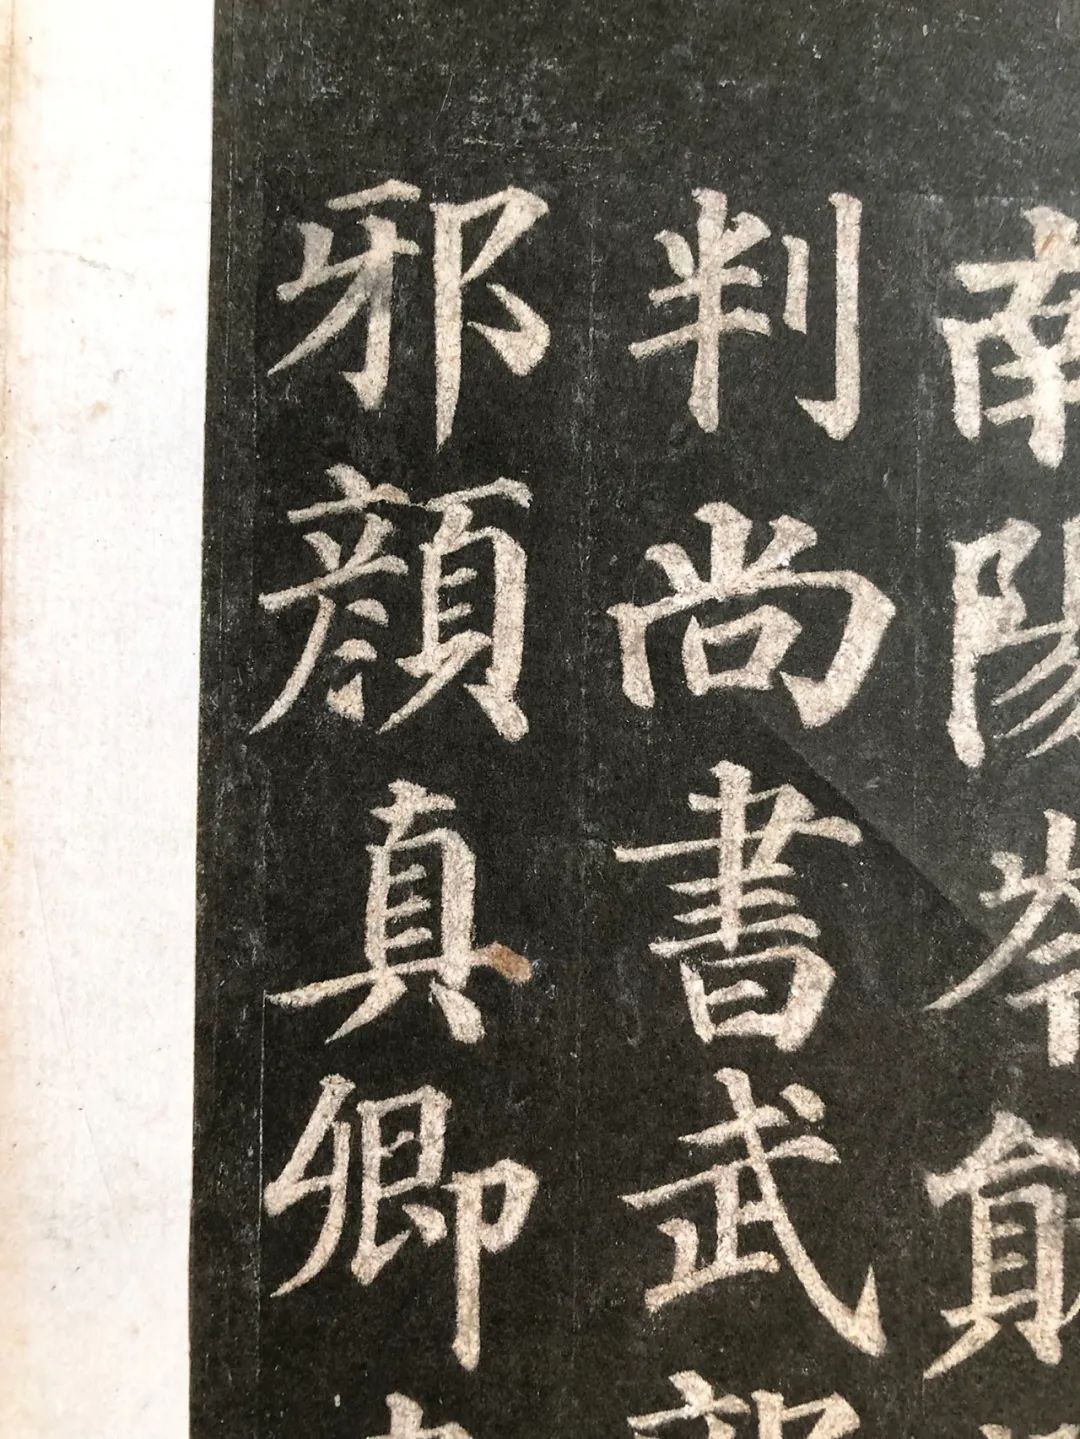 南陽岑勛
判尚書武部
邪顏真卿